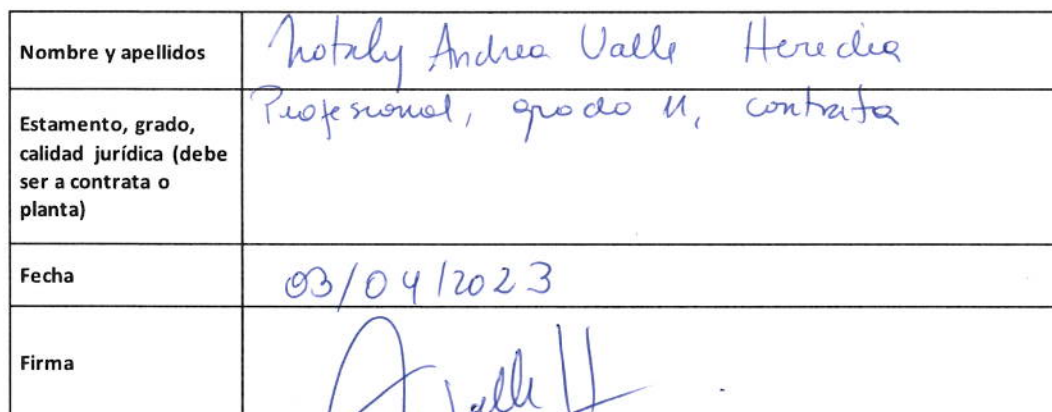 Nombre y apellidos
Nataly Andrea Valle Heredia
Estamento, grado,
calidad jurídica (debe
ser a contrata o
planta)
Profesional, grado 11, contrata
Fecha
03/04/2023
Firma
AValleH